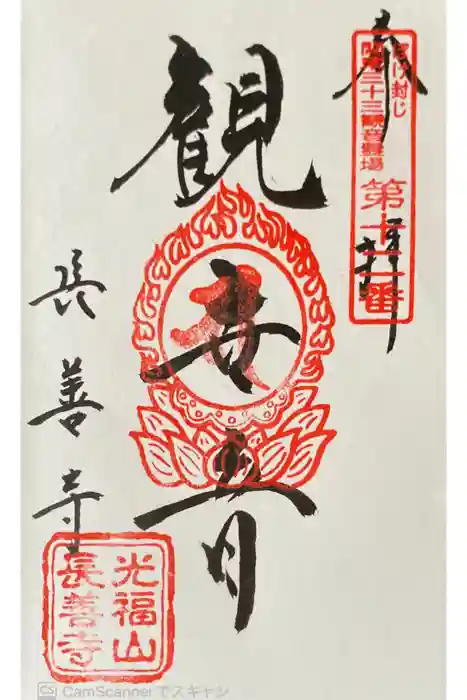 奉拝
ぼけ封じ
関東三十三観音霊場
第十二番
観世音
長善寺
光福山
長善寺
CS CamScanner でスキャン